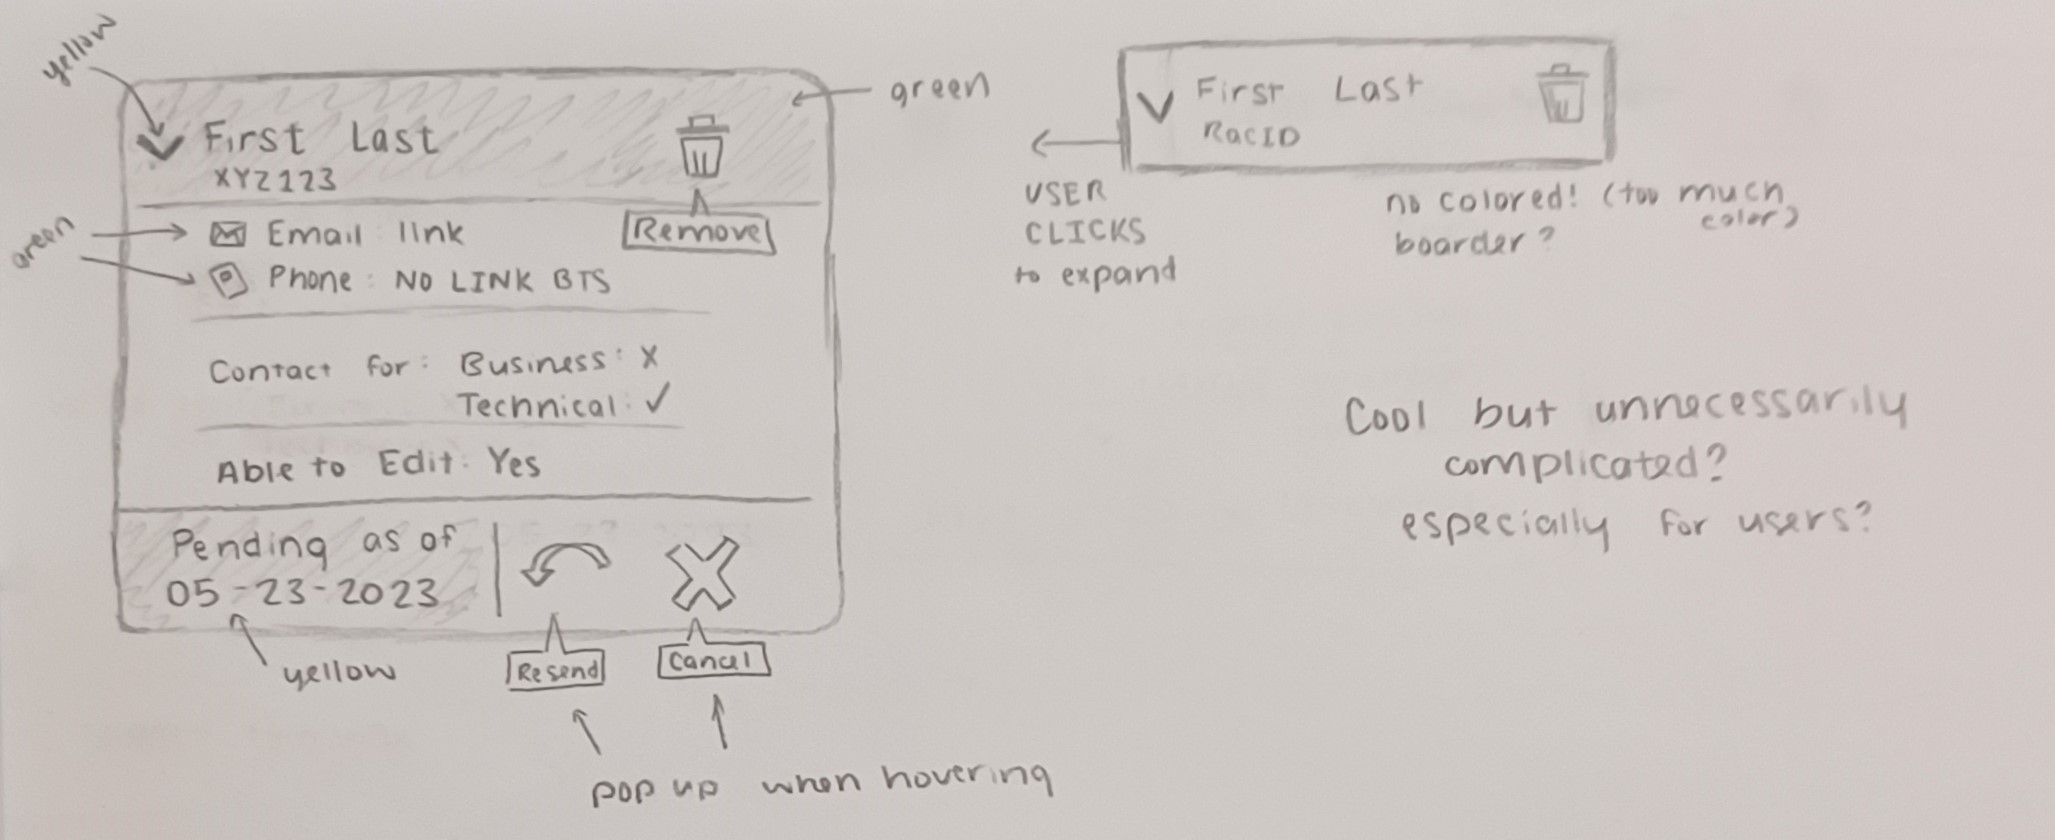 yellow
First Last
XYZ123
Remove
green
green
Email : link
Phone : NO LINK BTS
Contact for : Business : X
Technical : ✓
Able to Edit : Yes
Pending as of
05-23-2023
yellow
Resend
Cancel
pop up when hovering
First Last
RacID
USER
CLICKS
to expand
no colored! (too much
color)
boarder?
Cool but unnecessarily
complicated?
especially for users?